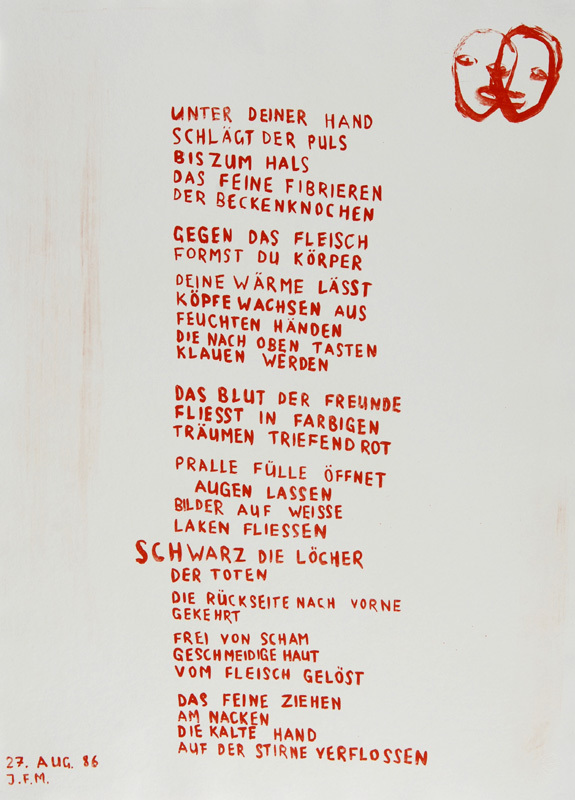 UNTER DEINER HAND
SCHLÄGT DER PULS
BIS ZUM HALS
DAS FEINE FIBRIEREN
DER BECKENKNOCHEN
GEGEN DAS FLEISCH
FORMST DU KÖRPER
DEINE WÄRME LÄSST
KÖPFE WACHSEN AUS
FEUCHTEN HÄNDEN
DIE NACH OBEN TASTEN
KLAUEN WERDEN
DAS BLUT DER FREUNDE
FLIESST IN FARBIGEN
TRÄUMEN TRIEFEND ROT
PRALLE FÜLLE ÖFFNET
AUGEN LASSEN
BILDER AUF WEISSE
LAKEN FLIESSEN
SCHWARZ DIE LÖCHER
DER TOTEN
DIE RÜCKSEITE NACH VORNE
GEKEHRT
FREI VON SCHAM
GESCHMEIDIGE HAUT
VOM FLEISCH GELÖST
DAS FEINE ZIEHEN
AM NACKEN
DIE KALTE HAND
AUF DER STIRNE VERFLOSSEN
27. AUG. 86
J.F.M.